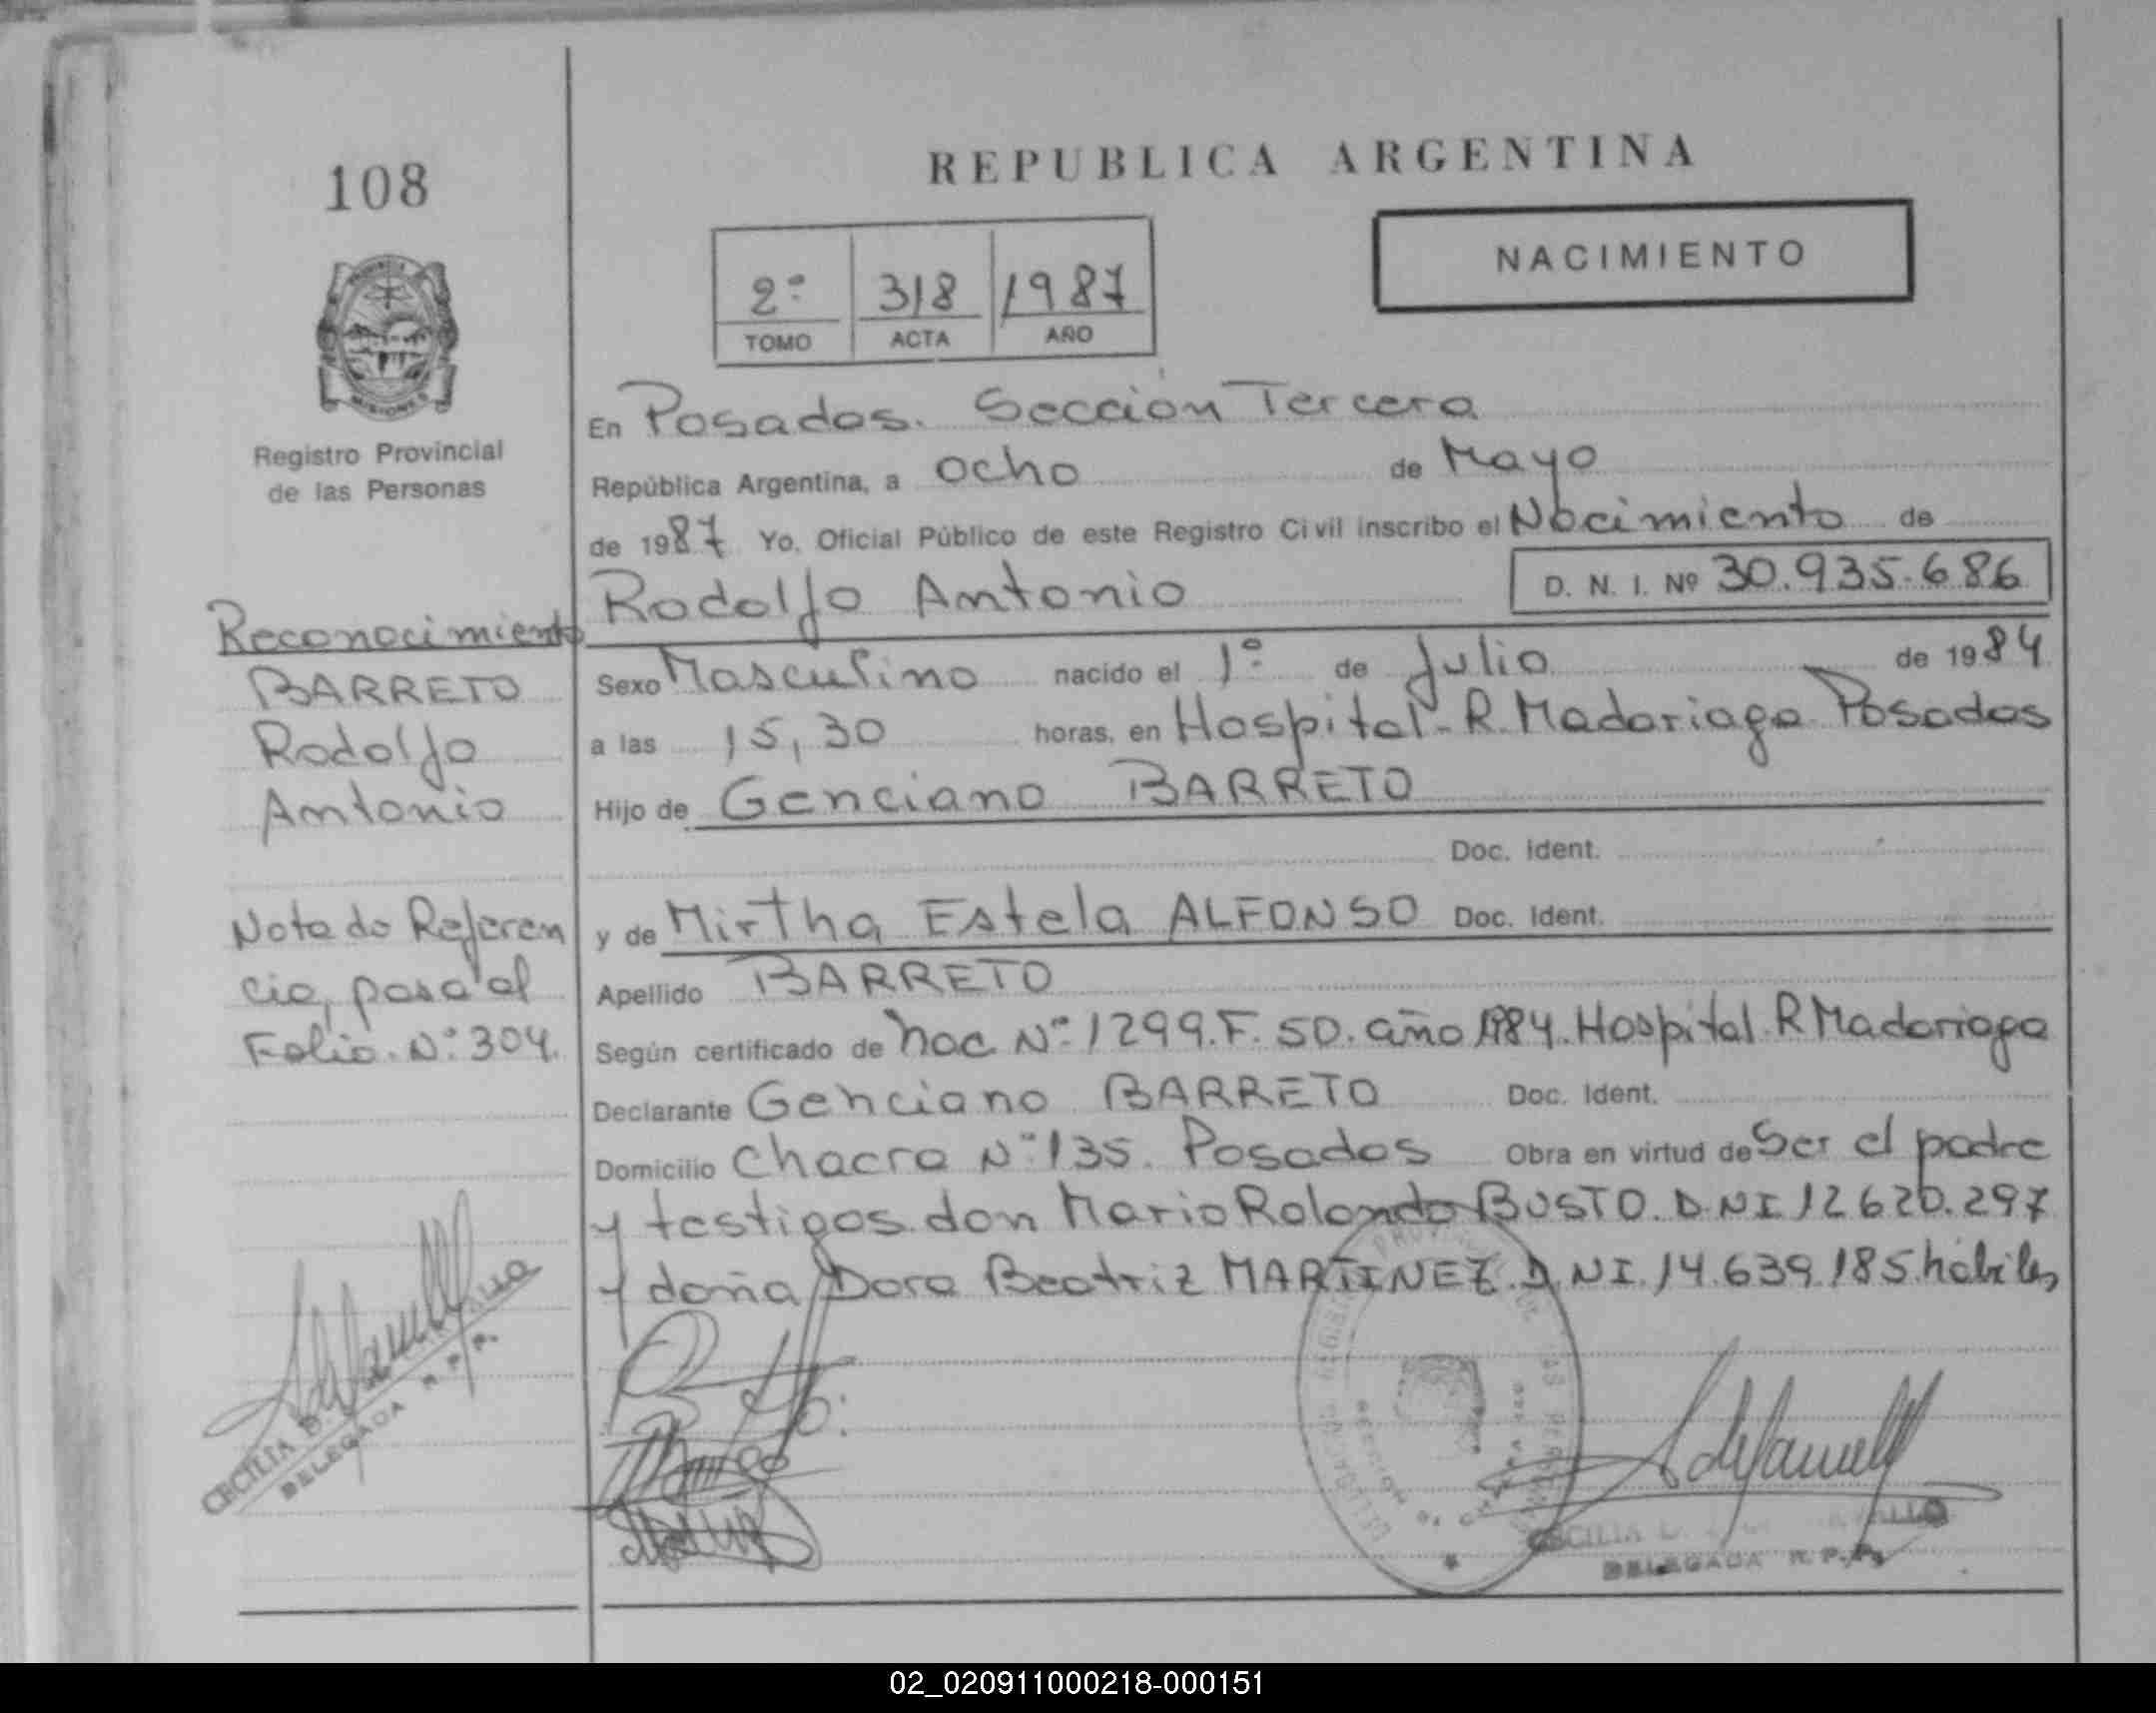 108
REPUBLICA ARGENTINA
NACIMIENTO
2º 318 1987
TOMO ACTA AÑO
PROVINCIA
MISIONES
Registro Provincial
de las Personas
En Posadas. Sección Tercera
República Argentina, a ocho de Mayo
de 1987 Yo, Oficial Público de este Registro Civil inscribo el Nacimiento de
Rodolfo Antonio D. N. I. Nº 30.935.686
Sexo Masculino nacido el 1º de Julio de 1984
a las 15,30 horas, en Hospital-R.Madariaga Posadas
Hijo de Genciano BARRETO
Doc. Ident.
y de Mirtha Estela ALFONSO Doc. Ident.
Apellido BARRETO
Según certificado de nac. Nº 1299.F. 50. año 1984. Hospital.R Madariaga
Declarante Genciano BARRETO Doc. Ident.
Domicilio Chacra Nº 135. Posadas Obra en virtud de Ser el padre
y testigos don Mario Rolando BUSTO. D.NI 12620.297
y doña Dora Beatriz MARTINEZ. D.NI. 14.639.185 hábiles
Reconocimiento
BARRETO
Rodolfo
Antonio
Nota de Referen
cia, pasa al
Folio. Nº 304.
CECILIA D.
DELEGADA R. P. P.
CECILIA D.
DELEGADA R. P. P.
02_020911000218-000151